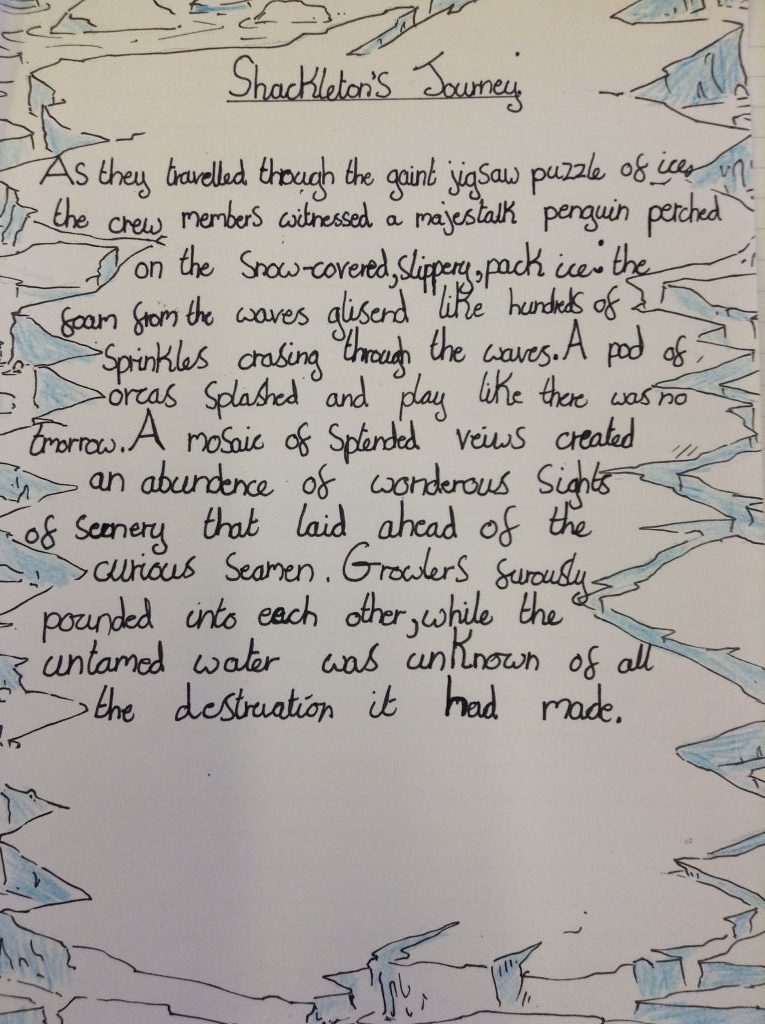 Shackleton's Journey
As they travelled though the gaint jigsaw puzzle of ice,
the crew members witnessed a majestalk penguin perched
on the snow-covered, slippery, pack ice. the
foam from the waves gliserd like hundreds of
sprinkles crasing through the waves. A pod of
orcas splashed and play like there was no
tmorrow. A mosaic of splended veiws created
an abundence of wonderous sights
of scenery that laid ahead of the
curious seamen. Growlers furously
pounded into each other, while the
untamed water was unknown of all
the destruation it had made.